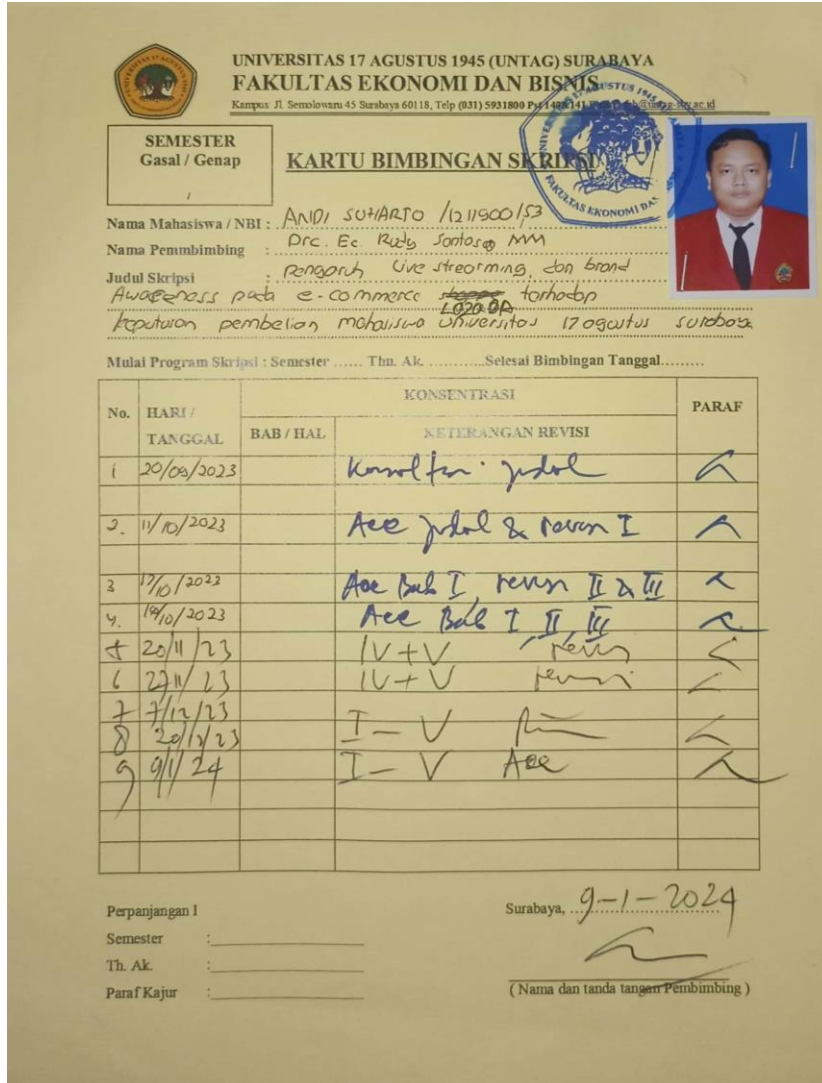 UNIVERSITAS 17 AGUSTUS 1945 (UNTAG) SURABAYA
FAKULTAS EKONOMI DAN BISNIS
Kampus Jl. Semolowaru 45 Surabaya 60118, Telp (031) 5931800
SEMESTER
Gasal / Genap
/
KARTU BIMBINGAN SKRIPSI
Nama Mahasiswa / NBI : ANDI SUHARTO /1211900153
Nama Pemmbimbing : Drc. Ec. Rudy Santoso MM
Judul Skripsi : Pengaruh Live streaming, dan brand
Awareness pada e-commerce terhadap
LAZADA
keputusan pembelian mahasiswa Universitas 17 agustus surabaya
Mulai Program Skripsi : Semester ...... Thn. Ak. ............Selesai Bimbingan Tanggal.........
No. HARI / TANGGAL KONSENTRASI PARAF
BAB / HAL KETERANGAN REVISI
1 20/09/2023 Konsultasi judul
2. 11/10/2023 Acc judul & revisi I
3 17/10/2023 Acc Bab I, revisi II & III
4. /10/2023 Acc Bab I, II, III
5 20/11/23 IV + V revisi
6 27/11/23 IV + V revisi
7 7/12/23
8 20/12/23 I - V
9 9/1/24 I - V Acc
Perpanjangan I
Surabaya, 9-1-2024
Semester :
Th. Ak. :
Paraf Kajur :
( Nama dan tanda tangan Pembimbing )